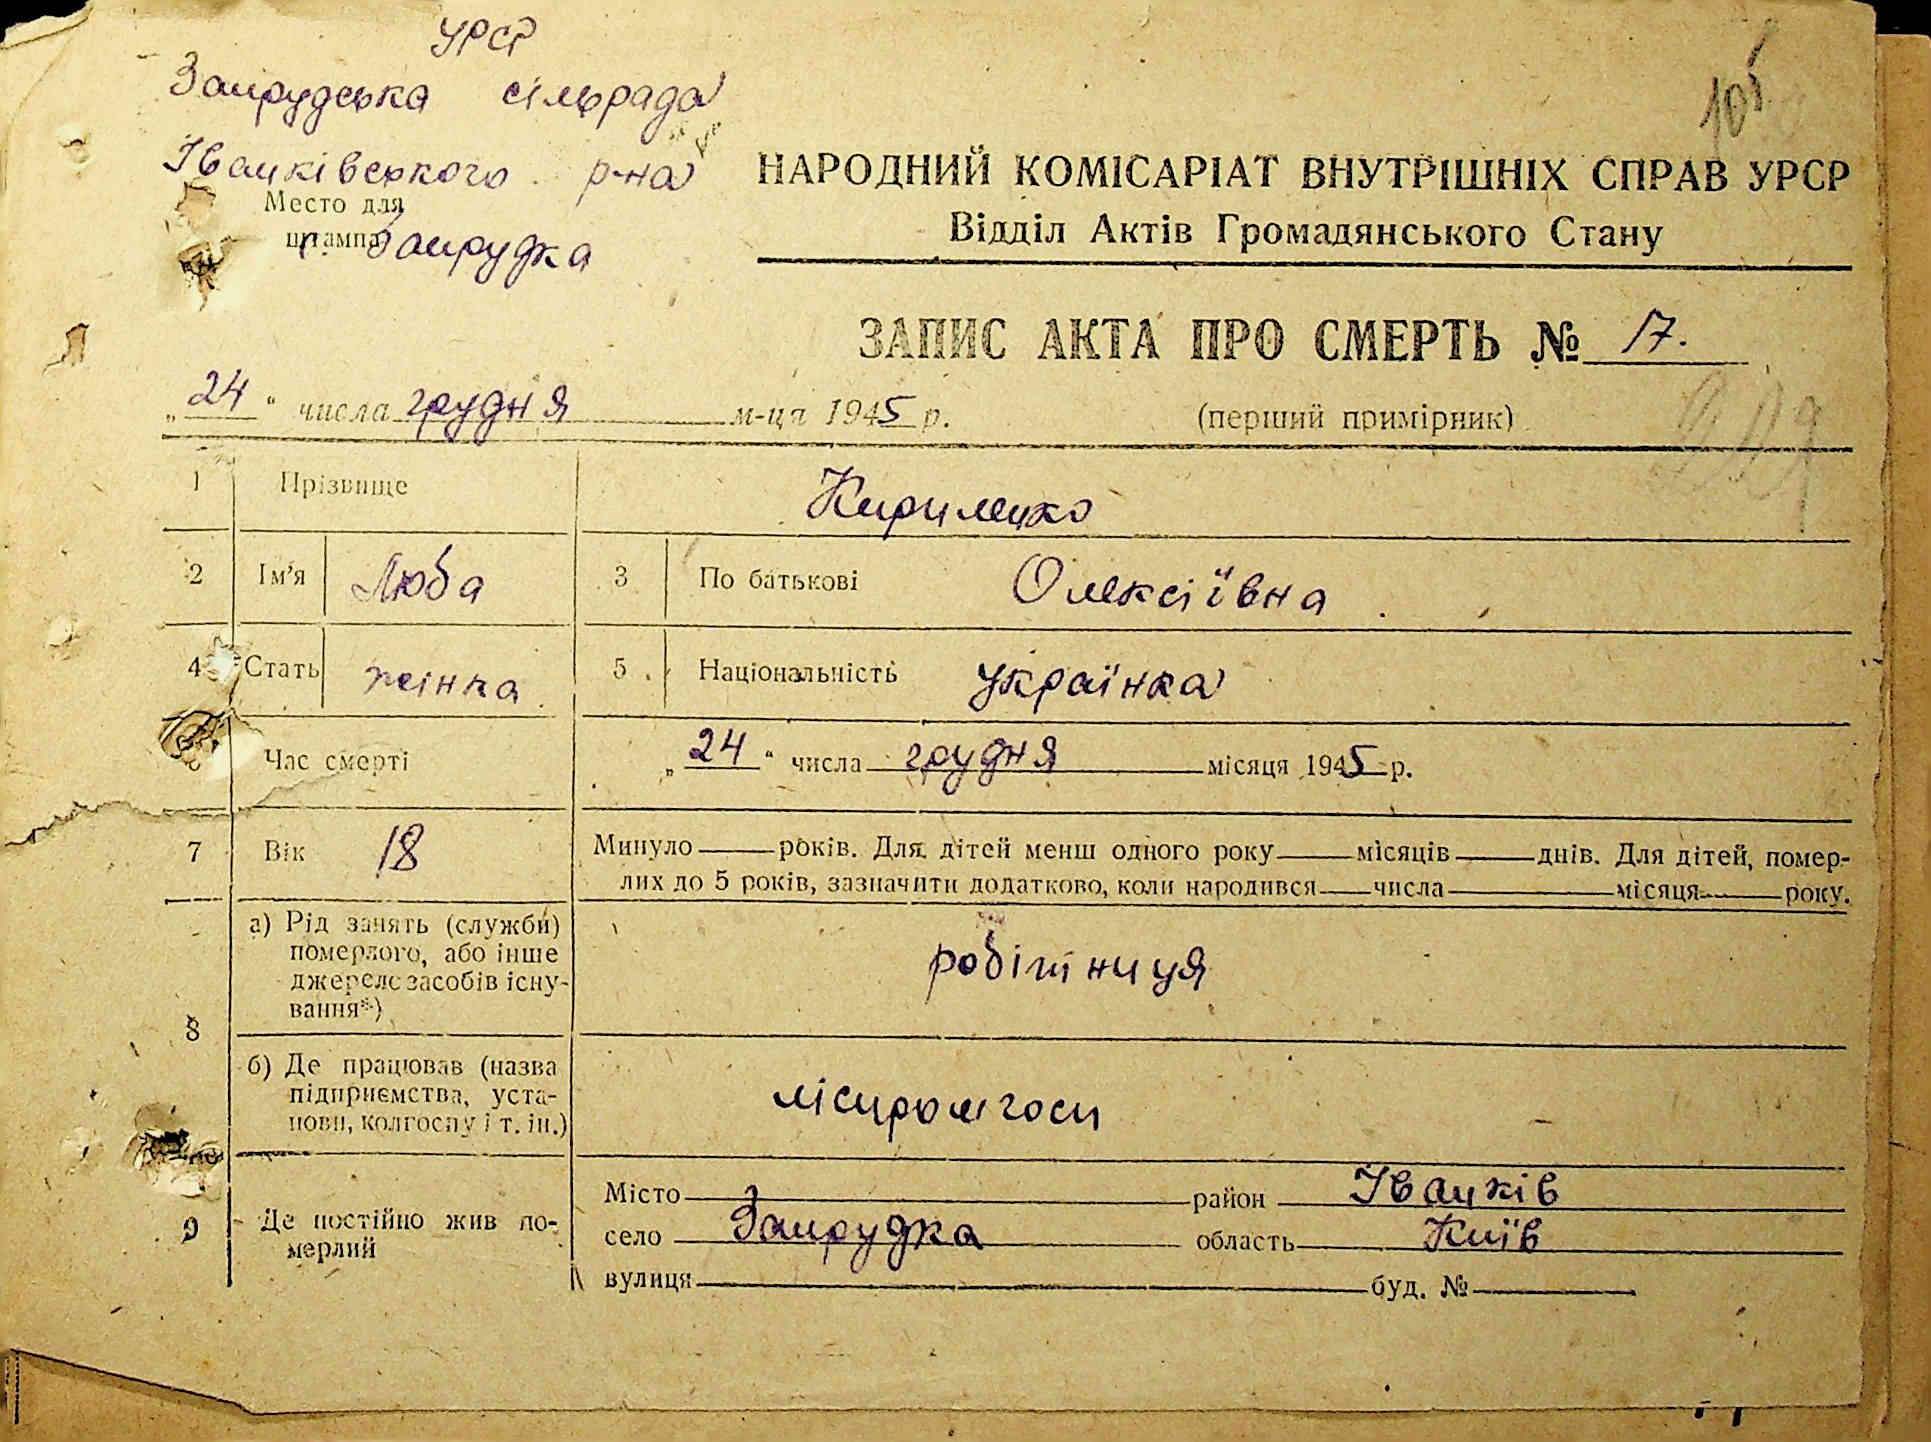 УРСР
Запрудська сільрада
Іванківського р-на
Место для
штампа
с. Запрудка
105
НАРОДНИЙ КОМІСАРІАТ ВНУТРІШНІХ СПРАВ УРСР
Відділ Актів Громадянського Стану
ЗАПИС АКТА ПРО СМЕРТЬ № 17.
„24“ числа грудня м-ця 1945 р. (перший примірник)
1 Прізвище Кириленко
2 Ім’я Люба 3 По батькові Олексіївна
4 Стать жінка 5 Національність українка
Час смерті „24“ числа грудня місяця 1945 р.
7 Вік 18 Минуло років. Для дітей менш одного року місяців днів. Для дітей, помер-
лих до 5 років, зазначити додатково, коли народився числа місяця року.
8 а) Рід занять (служби)
померлого, або інше
джерело засобів існу-
вання*)
робітниця
б) Де працював (назва
підприємства, уста-
нови, колгоспу і т. ін.)
ліспромгосп
9 Де постійно жив по-
мерлий
Місто район Іванків
село Запрудка область Київ
вулиця буд. №